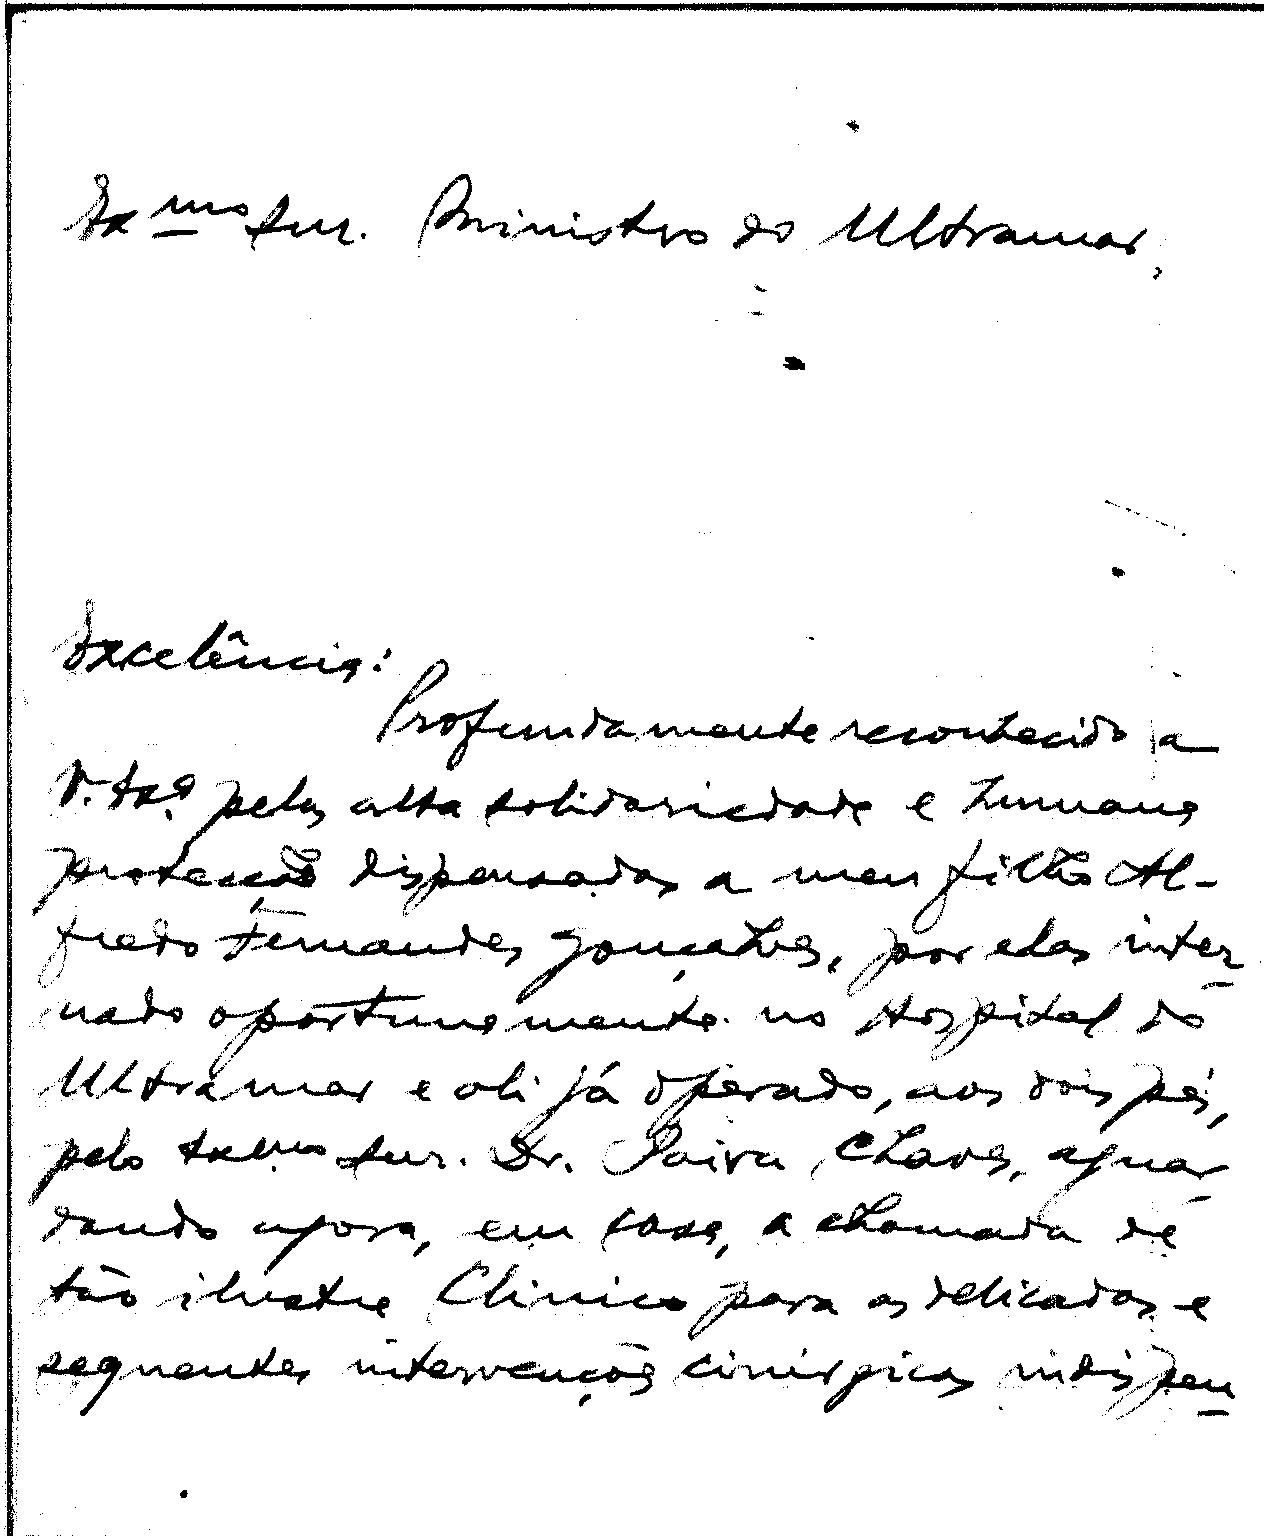 Ex.mo Snr. Ministro do Ultramar,
Excelência:
Profundamente reconhecido a
V. Ex.ª pelas alta solidariedade e humana
protecção dispensadas a meu filho Al-
fredo Fernandes Gonçalves, por elas inter-
nado oportunemente no Hospital do
Ultramar e ali já operado, aos dois pés,
pelo Exmo Snr. Dr. Paiva Chaves, aguar-
dando agora, em casa, a chamada de
tão ilustre Clinico para as delicadas e
seguentes intervenções cirúrgicas indispen-